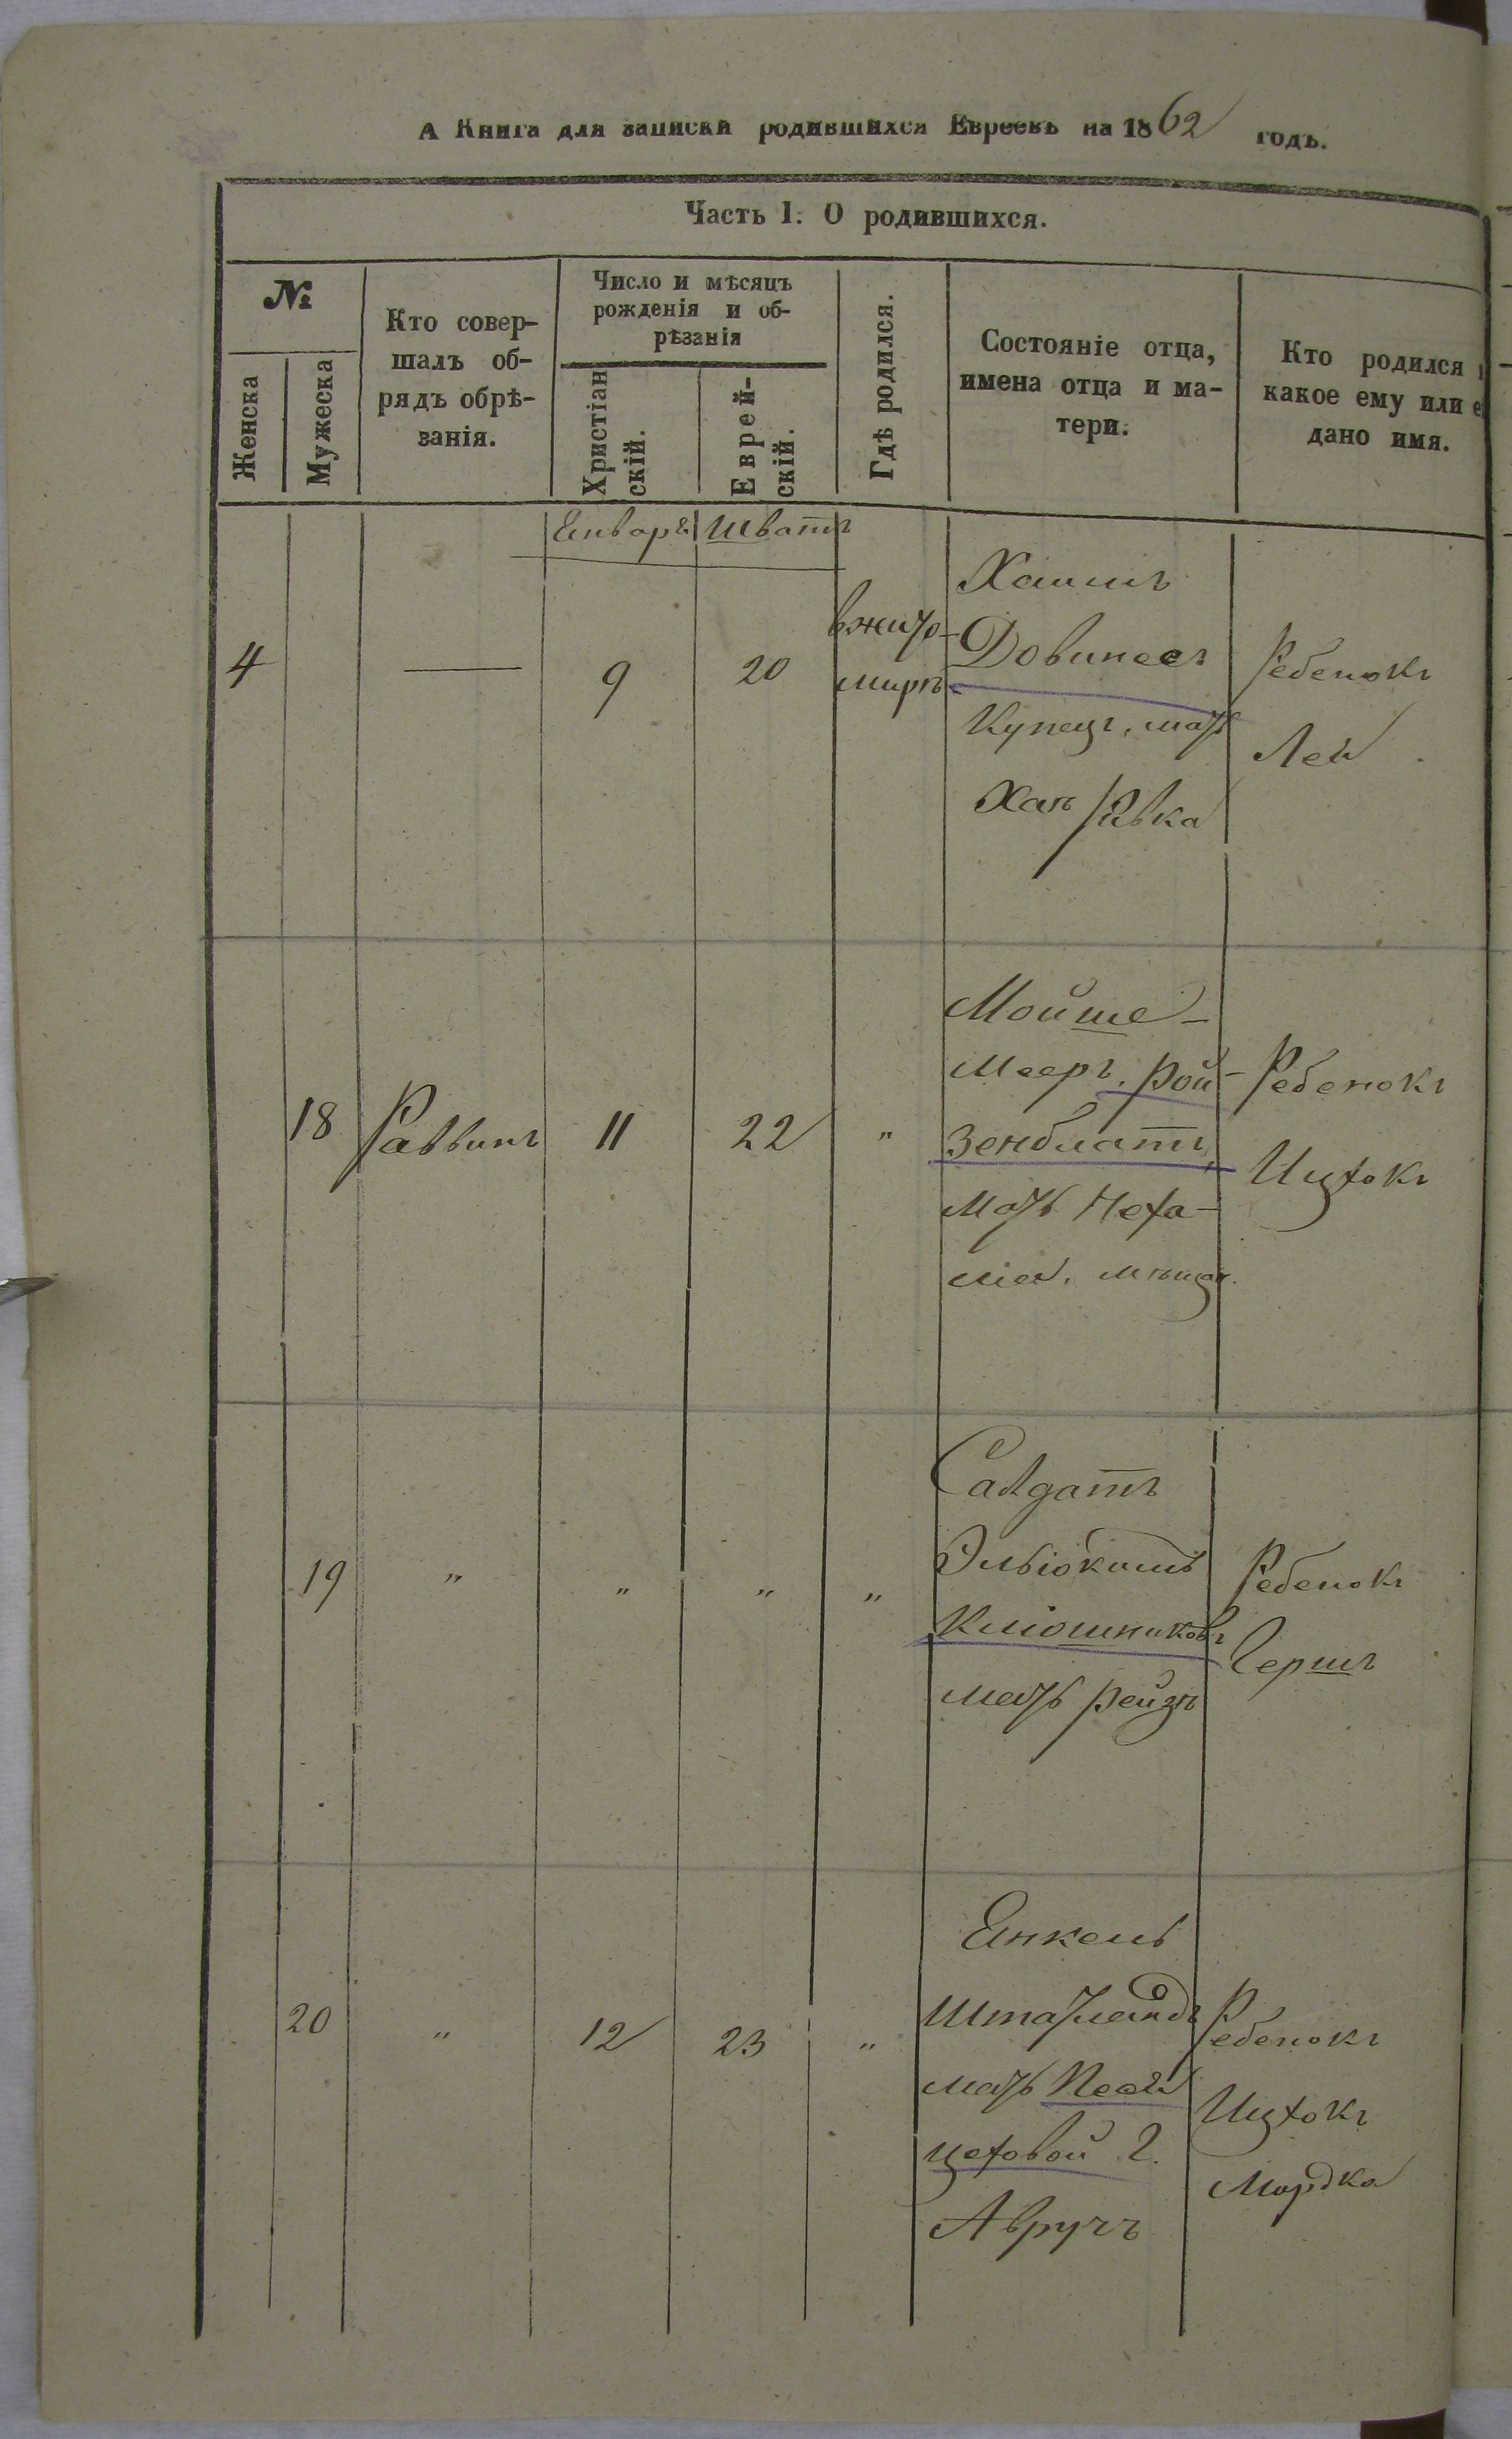 А Книга для записки родившихся Евреевъ на 1862 годъ.
Часть I. О родившихся.
№
Женска
Мужеска
Кто совер-
шалъ об-
рядъ обрѣ-
занія.
Число и мѣсяцъ
рожденія и об-
рѣзанія
Христіан
скій.
Еврей-
скій.
Гдѣ родился.
Состояніе отца,
имена отца и ма-
тери.
Кто родился
какое ему или е
дано имя.
Енваря Шватъ
4
—
9
20
вжито-
миръ
Хаимъ
Довинеръ
Купецъ, мать
Хая Ривка
Ребенокъ
Лея
18
Раввинъ
11
22
"
Мойше-
Мееръ, Рой-
зенблатъ,
мать Неха-
мія, мѣщан.
Ребенокъ
Ицхокъ
19
"
"
"
"
Салдатъ
Эльіокимъ
Кліошниковъ
мать Рейзя
Ребенокъ
Гершъ
20
"
12
23
"
Енкель
Штатландъ
мать Песя
цеховой г.
Авручъ
Ребенокъ
Ицхокъ
Мордка